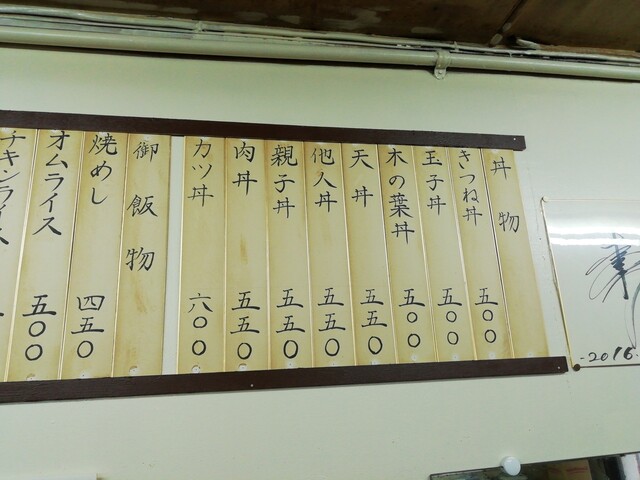 丼物
きつね丼 五〇〇
玉子丼 五〇〇
木の葉丼 五〇〇
天丼 五五〇
他人丼 五五〇
親子丼 五五〇
肉丼 五五〇
カツ丼 六〇〇
御飯物
焼めし 四五〇
オムライス 五〇〇
チキンライス
-2016.